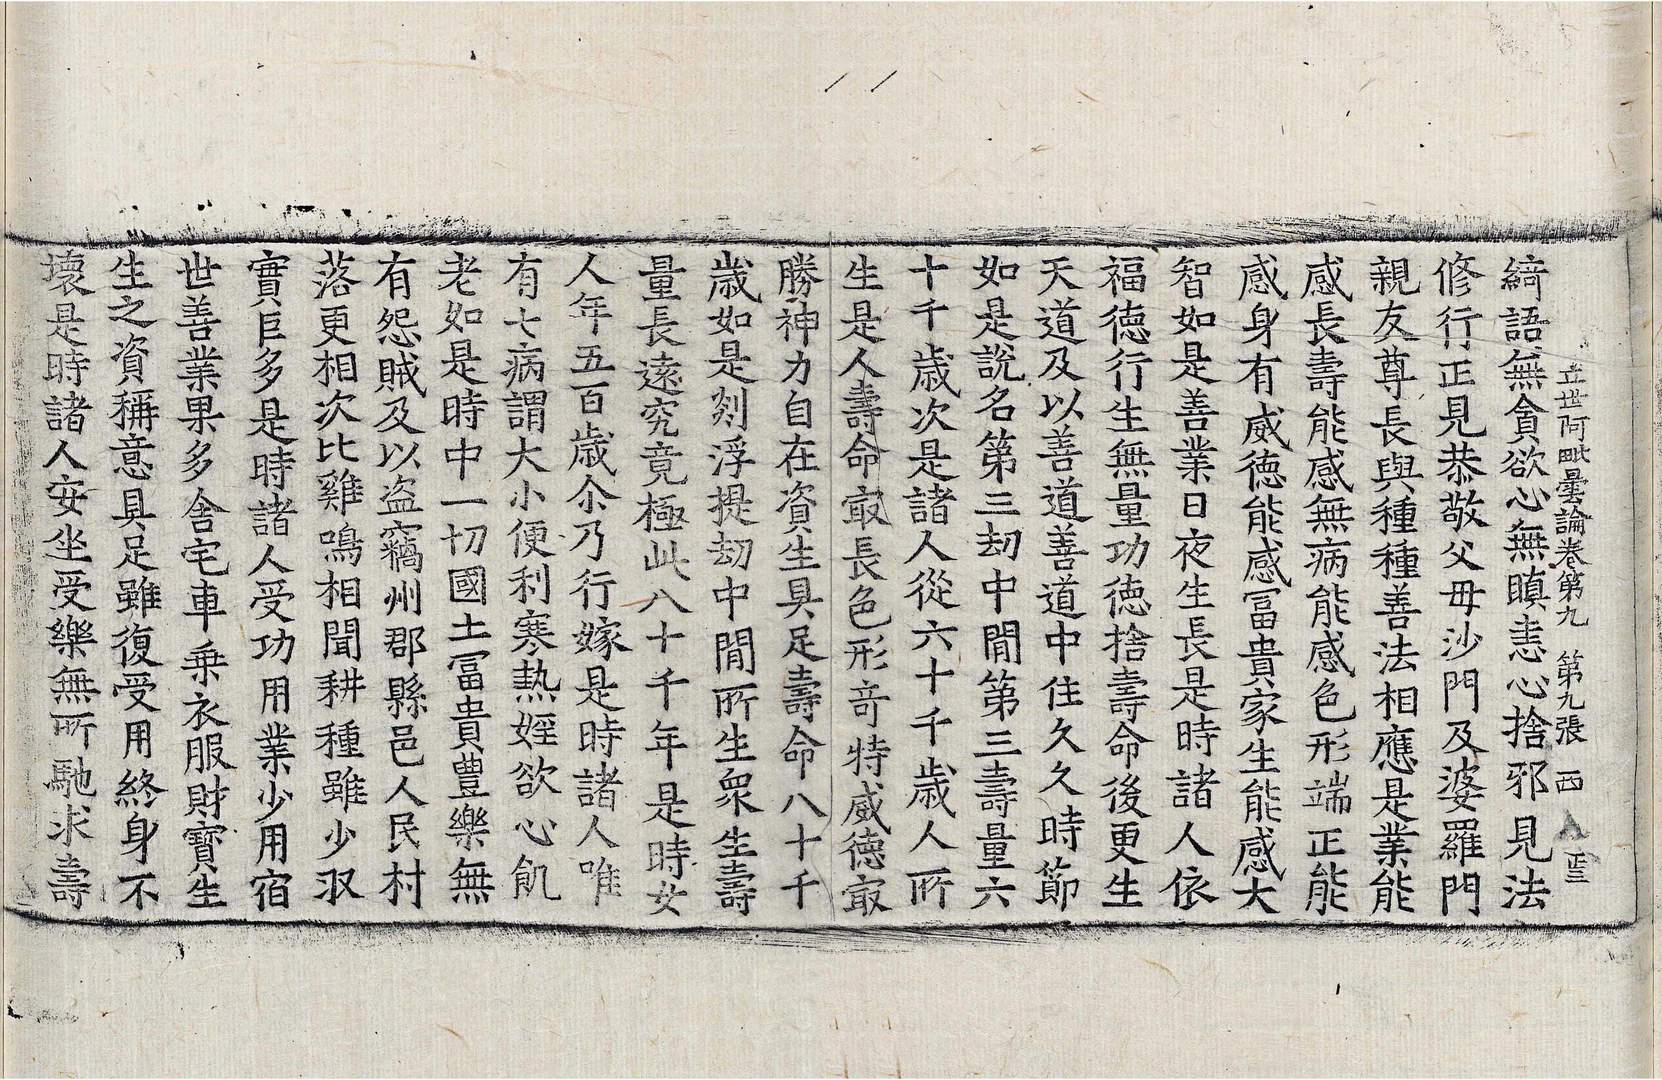 立世阿毗曇論卷第九 第九張 西
綺語無貪欲心無瞋恚心捨邪見法
修行正見恭敬父毋沙門及婆羅門
親友尊長與種種善法相應是業能
感長壽能感無病能感色形端正能
感身有威徳能感冨貴家生能感大
智如是善業日夜生長是時諸人依
福徳行生無量功徳捨壽命後更生
天道及以善道善道中住久久時節
如是說名第三刼中閒第三壽量六
十千歲次是諸人從六十千歲人所
生是人壽命㝡長色形竒特威徳㝡
勝神力自在資生具足壽命八十千
歲如是剡浮提刼中閒所生衆生壽
量長遠究竟極此八十千年是時女
人年五百歲尒乃行嫁是時諸人唯
有七病謂大小便利寒熱婬欲心飢
老如是時中一切國土冨貴豊樂無
有怨賊及以盗竊州郡縣邑人民村
落更相次比雞鳴相聞耕種雖少収
實巨多是時諸人受功用業少用宿
世善業果多舍宅車乗衣服財寳生
生之資稱意具足雖復受用終身不
壞是時諸人安坐受樂無所馳求壽